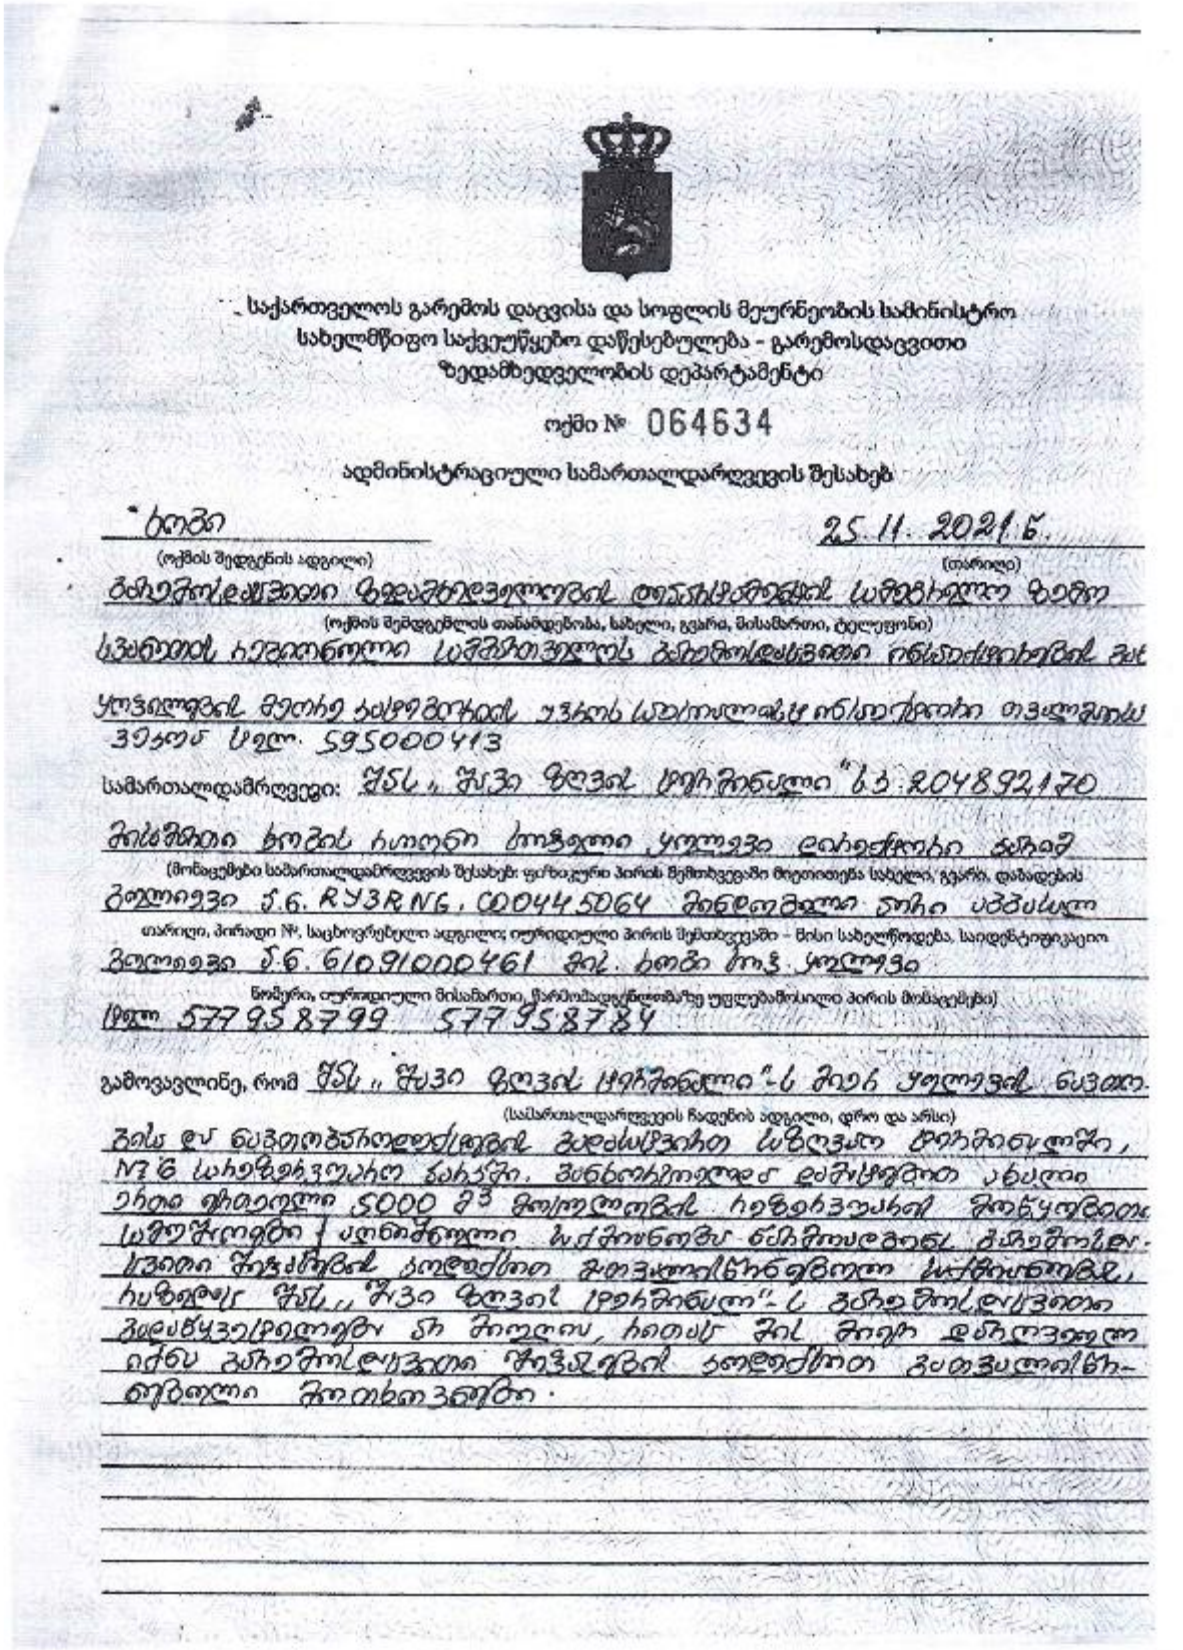 საქართველოს გარემოს დაცვისა და სოფლის მეურნეობის სამინისტრო
სახელმწიფო საქვეუწყებო დაწესებულება - გარემოსდაცვითი
ზედამხედველობის დეპარტამენტი
ოქმი № 064634
ადმინისტრაციული სამართალდარღვევის შესახებ
ხობი 25.11.2021 წ.
(ოქმის შედგენის ადგილი) (თარიღი)
გარემოსდაცვითი ზედამხედველობის დეპარტამენტის სამეგრელო ზემო
(ოქმის შემდგენლის თანამდებობა, სახელი, გვარი, მისამართი, ტელეფონი)
სვანეთის რეგიონული სამმართველოს გარემოსდაცვითი ინსპექტირების გან
ყოფილების მეორე კატეგორიის უფროს სპეციალისტ ინსპექტორი
ტელ. 595000413
სამართალდამრღვევი: შპს „შავი ზღვის ტერმინალი“ ს.კ. 204892170
მისამართი ხობის რაიონი სოფელი ყულევი დირექტორი
(მონაცემები სამართალდამრღვევის შესახებ: ფიზიკური პირის შემთხვევაში მიეთითება სახელი, გვარი, დაბადების
გულიევი პ.ნ. RY3RNG. C00445064 მინდობილი პირი
თარიღი, პირადი №, საცხოვრებელი ადგილი; იურიდიული პირის შემთხვევაში – მისი სახელწოდება, საიდენტიფიკაციო
გულიევი პ.ნ. 61091000461 მის. ხობი სოფ. ყულევი
ნომერი, იურიდიული მისამართი, წარმომადგენლობაზე უფლებამოსილი პირის მონაცემები)
ტელ 577958799 577958784
გამოვავლინე, რომ შპს „შავი ზღვის ტერმინალი“-ს მიერ ყულევის ნავთო-
(სამართალდარღვევის ჩადენის ადგილი, დრო და არსი)
ბისა და ნავთობპროდუქტების გადასატვირთ საზღვაო ტერმინალში,
№6 სარეზერვუარო პარკში. განხორციელდა დამატებით ახალი
ერთი ერთეული 5000 მ³ მოცულობის რეზერვუარის მოწყობითი
სამუშაოები აღნიშნული საქმიანობა წარმოადგენს გარემოსდა-
ცვითი შეფასების კოდექსით გათვალისწინებულ საქმიანობას,
რაზედაც შპს „შავი ზღვის ტერმინალი“-ს გარემოსდაცვითი
გადაწყვეტილება არ მიუღია, რითაც მის მიერ დარღვეულ
იქნა გარემოსდაცვითი შეფასების კოდექსით გათვალისწი-
ნებული მოთხოვნები.